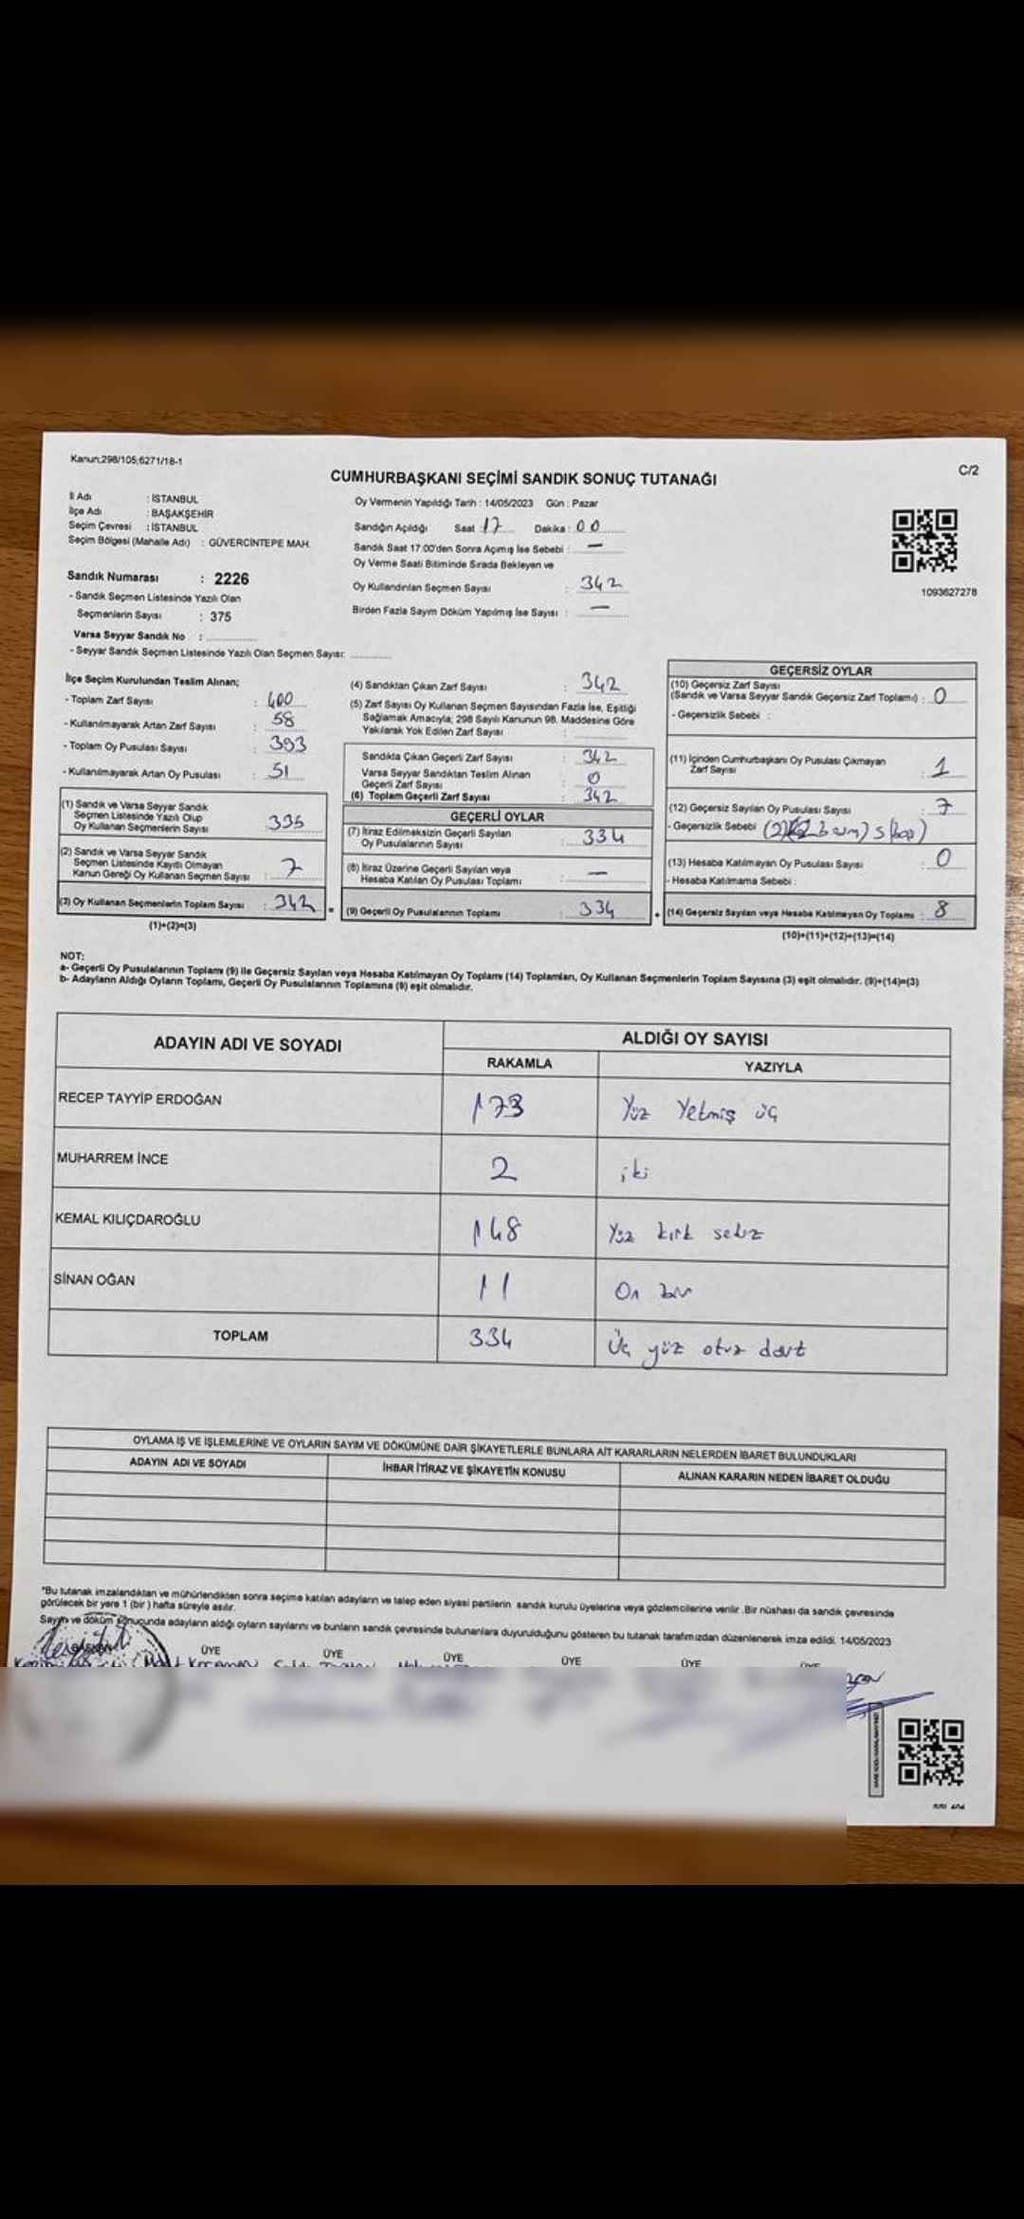 Kanun;298/105;6271/18-1
C/2
CUMHURBAŞKANI SEÇİMİ SANDIK SONUÇ TUTANAĞI
İl Adı : İSTANBUL
İlçe Adı : BAŞAKŞEHİR
Seçim Çevresi : İSTANBUL
Seçim Bölgesi (Mahalle Adı) : GÜVERCİNTEPE MAH.
Sandık Numarası : 2226
- Sandık Seçmen Listesinde Yazılı Olan
Seçmenlerin Sayısı : 375
Varsa Seyyar Sandık No :
- Seyyar Sandık Seçmen Listesinde Yazılı Olan Seçmen Sayısı:
Oy Vermenin Yapıldığı Tarih : 14/05/2023 Gün : Pazar
Sandığın Açıldığı Saat : 17 Dakika : 00
Sandık Saat 17:00'den Sonra Açımış İse Sebebi : —
Oy Verme Saati Bitiminde Sırada Bekleyen ve
Oy Kullandırılan Seçmen Sayısı : 342
Birden Fazla Sayım Döküm Yapılmış İse Sayısı : —
1093627278
İlçe Seçim Kurulundan Teslim Alınan;
- Toplam Zarf Sayısı : 400
- Kullanılmayarak Artan Zarf Sayısı : 58
- Toplam Oy Pusulası Sayısı : 393
- Kullanılmayarak Artan Oy Pusulası : 51
(1) Sandık ve Varsa Seyyar Sandık
Seçmen Listesinde Yazılı Olup
Oy Kullanan Seçmenlerin Sayısı : 335
(2) Sandık ve Varsa Seyyar Sandık
Seçmen Listesinde Kayıtlı Olmayan
Kanun Gereği Oy Kullanan Seçmen Sayısı : 7
(3) Oy Kullanan Seçmenlerin Toplam Sayısı : 342
(1)+(2)=(3)
(4) Sandıktan Çıkan Zarf Sayısı : 342
(5) Zarf Sayısı Oy Kullanan Seçmen Sayısından Fazla İse, Eşitliği
Sağlamak Amacıyla; 298 Sayılı Kanunun 98. Maddesine Göre
Yakılarak Yok Edilen Zarf Sayısı :
Sandıkta Çıkan Geçerli Zarf Sayısı : 342
Varsa Seyyar Sandıktan Teslim Alınan
Geçerli Zarf Sayısı : 0
(6) Toplam Geçerli Zarf Sayısı : 342
GEÇERLİ OYLAR
(7) İtiraz Edilmeksizin Geçerli Sayılan
Oy Pusulalarının Sayısı : 334
(8) İtiraz Üzerine Geçerli Sayılan veya
Hesaba Katılan Oy Pusulası Toplamı : —
(9) Geçerli Oy Pusulalarının Toplamı : 334
GEÇERSİZ OYLAR
(10) Geçersiz Zarf Sayısı
(Sandık ve Varsa Seyyar Sandık Geçersiz Zarf Toplamı) : 0
- Geçersizlik Sebebi :
(11) İçinden Cumhurbaşkanı Oy Pusulası Çıkmayan
Zarf Sayısı : 1
(12) Geçersiz Sayılan Oy Pusulası Sayısı : 7
- Geçersizlik Sebebi
(13) Hesaba Katılmayan Oy Pusulası Sayısı : 0
- Hesaba Katılmama Sebebi :
(14) Geçersiz Sayılan veya Hesaba Katılmayan Oy Toplamı : 8
(10)+(11)+(12)+(13)=(14)
NOT:
a- Geçerli Oy Pusulalarının Toplamı (9) ile Geçersiz Sayılan veya Hesaba Katılmayan Oy Toplamı (14) Toplamları, Oy Kullanan Seçmenlerin Toplam Sayısına (3) eşit olmalıdır. (9)+(14)=(3)
b- Adayların Aldığı Oyların Toplamı, Geçerli Oy Pusulalarının Toplamına (9) eşit olmalıdır.
ADAYIN ADI VE SOYADI
ALDIĞI OY SAYISI
RAKAMLA YAZIYLA
RECEP TAYYİP ERDOĞAN 173 Yüz Yetmiş üç
MUHARREM İNCE 2 iki
KEMAL KILIÇDAROĞLU 148 Yüz kırk sekiz
SİNAN OĞAN 11 On bir
TOPLAM 334 Üç yüz otuz dört
OYLAMA İŞ VE İŞLEMLERİNE VE OYLARIN SAYIM VE DÖKÜMÜNE DAİR ŞİKAYETLERLE BUNLARA AİT KARARLARIN NELERDEN İBARET BULUNDUKLARI
ADAYIN ADI VE SOYADI İHBAR İTİRAZ VE ŞİKAYETİN KONUSU ALINAN KARARIN NEDEN İBARET OLDUĞU
*Bu tutanak imzalandıktan ve mühürlendikten sonra seçime katılan adayların ve talep eden siyasi partilerin sandık kurulu üyelerine veya gözlemcilerine verilir .Bir nüshası da sandık çevresinde
görülecek bir yere 1 (bir ) hafta süreyle asılır.
Sayım ve döküm sonucunda adayların aldığı oyların sayılarını ve bunların sandık çevresinde bulunanlara duyurulduğunu gösteren bu tutanak tarafımızdan düzenlenerek imza edildi. 14/05/2023
ÜYE ÜYE ÜYE ÜYE ÜYE ÜYE